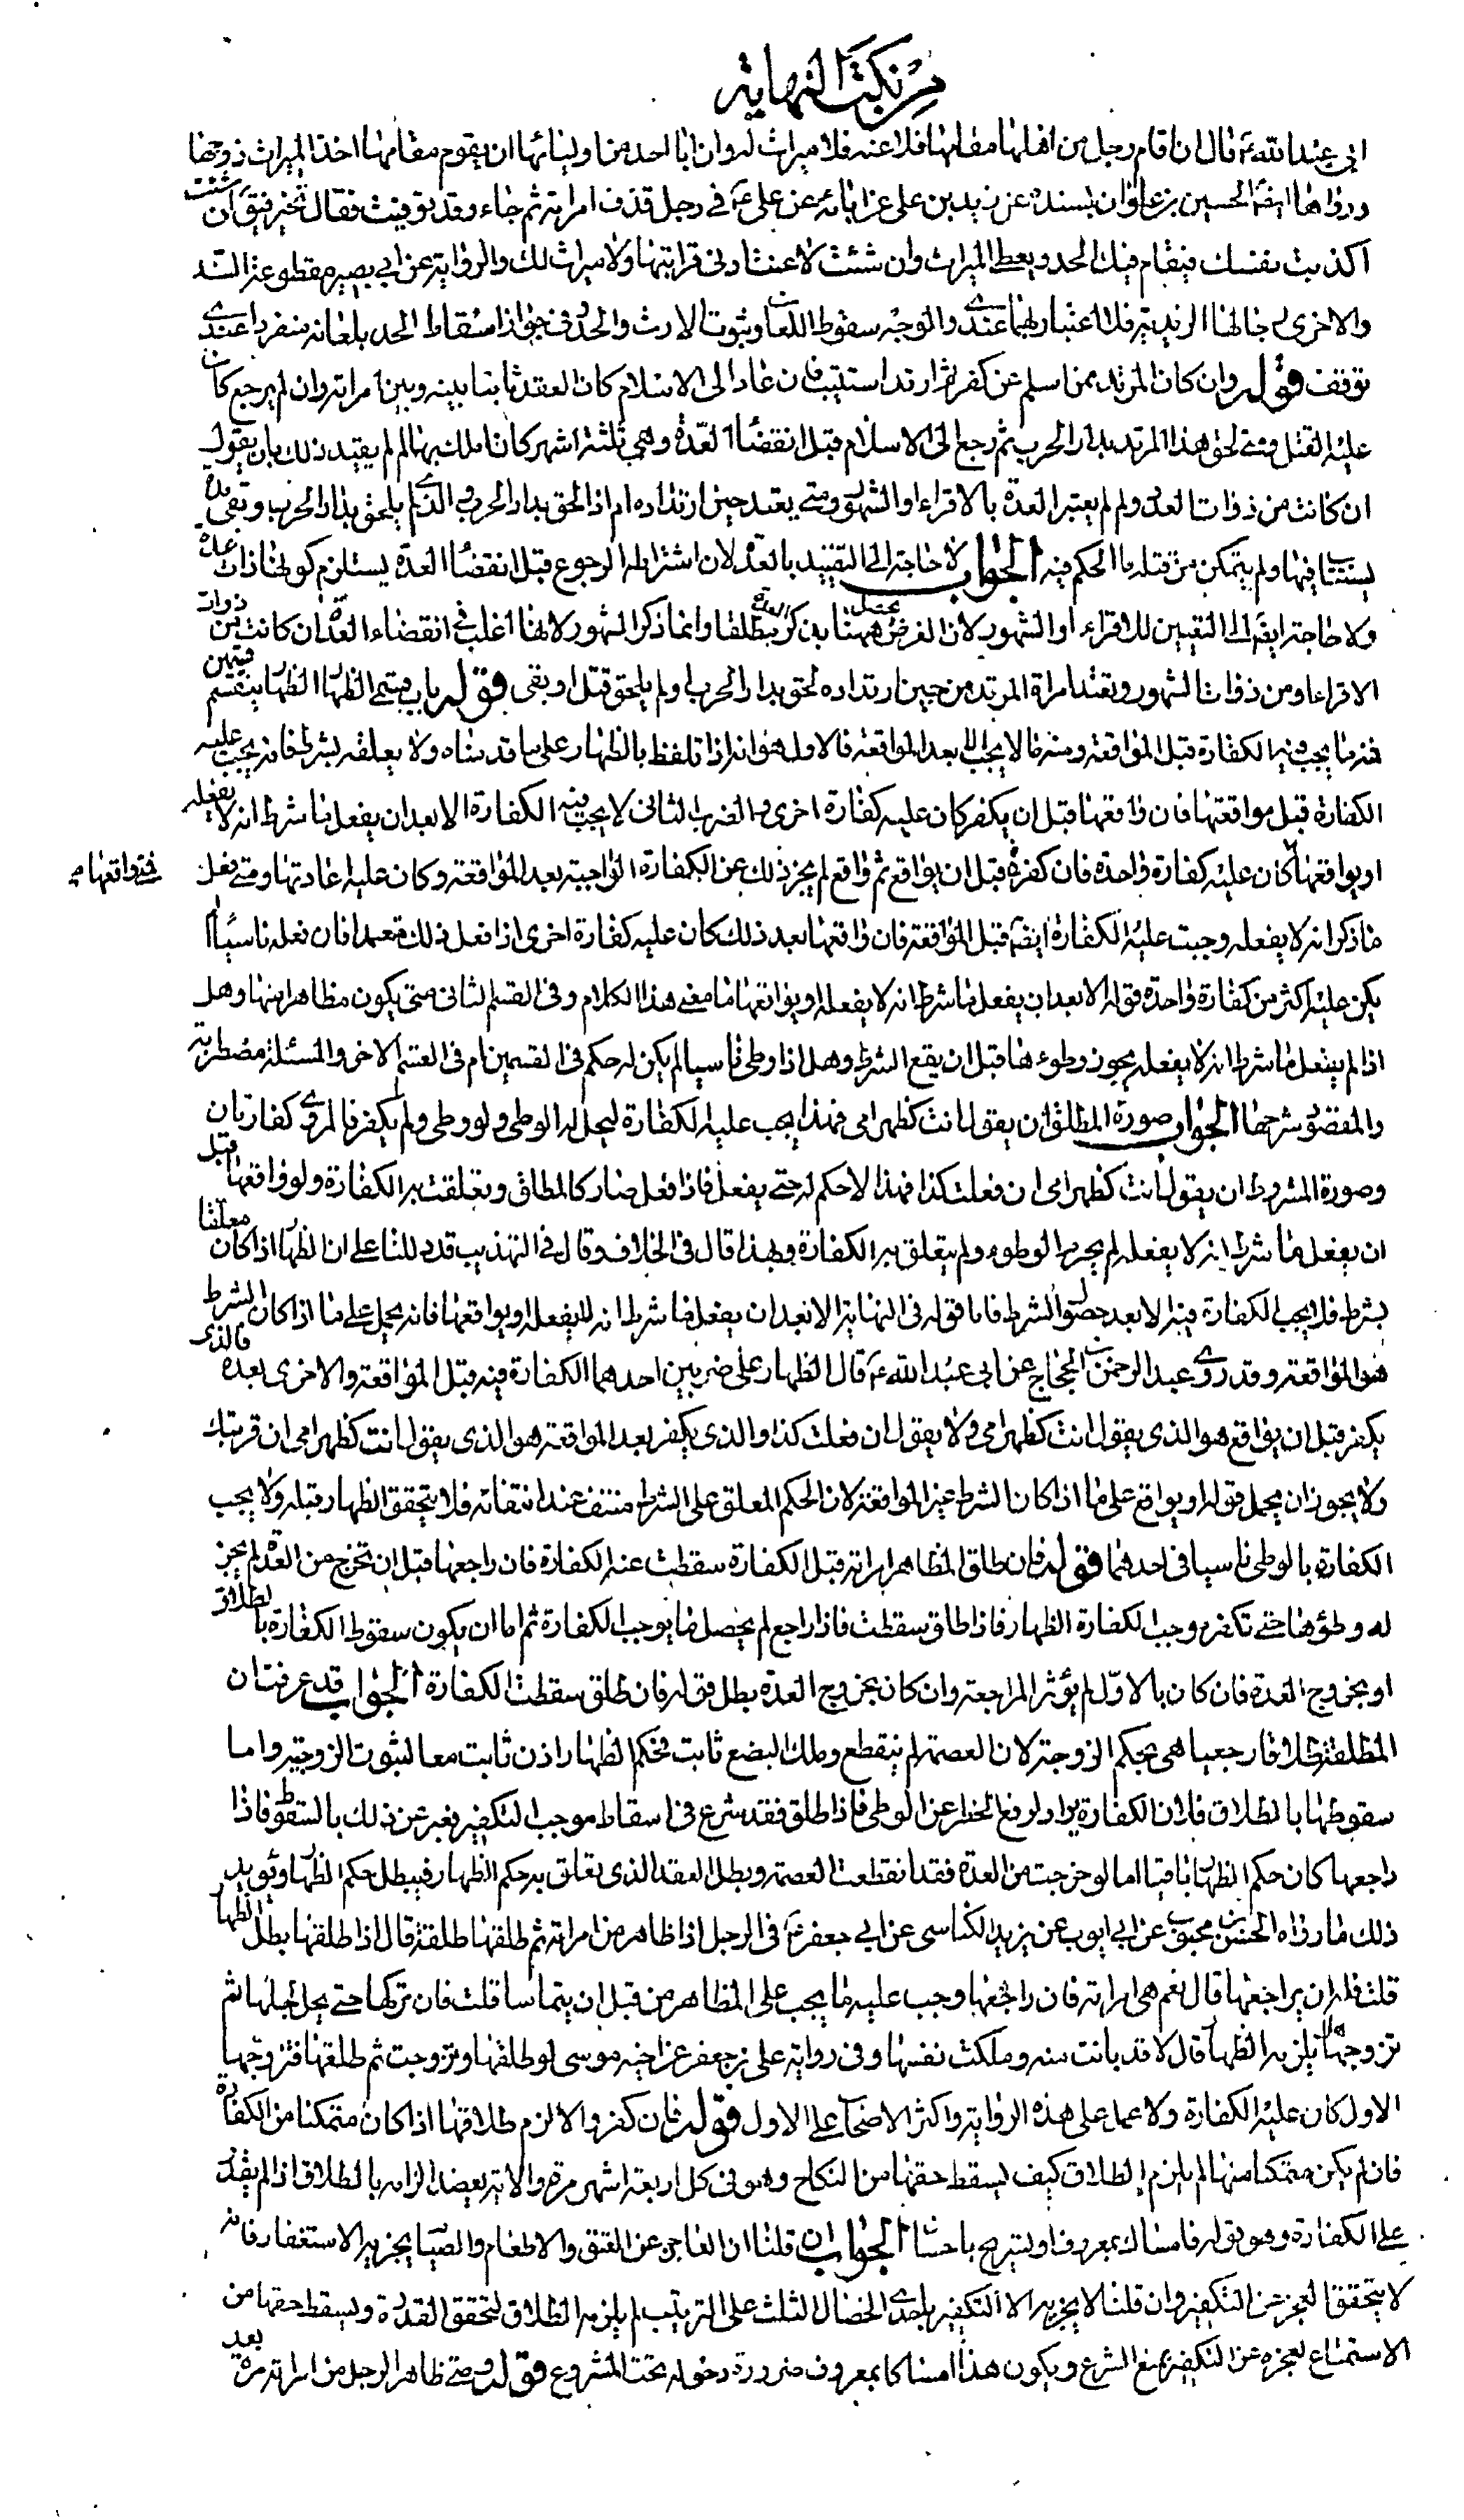 من نكت النهاية
ابي عبد الله ع قال ان قام رجل من اهلها مقامها فلاعنه فلا ميراث له وان ابا احد من اوليائها ان يقوم مقامها اخذ الميراث زوجها
ورواها ايضا الحسين بن علوان بسنده عن زيد بن علي عن ابائه عن علي ع في رجل قذف امراته ثم جاء وقد توفيت فقال تخير فيق ان شئت
اكذبت نفسك فيقام فيك الحد ويعطى الميراث وان شئت لاعنت ادنى قرابتها ولا ميراث لك والرواية عن ابي بصير مقطوعة السند
والاخرى رجالها الزيدية فلا اعتبار بهما عندي والوجه سقوط اللعان وثبوت الارث والحد وفي جواز اسقاط الحد بلعانه منفردا عندي
توقف قوله وان كان المرتد ممن اسلم عن كفر ثم ارتد استتيب فان عاد الى الاسلام كان العقد ثابتا بينه وبين امراته وان لم يرجع كان
عليه القتل ومتى لحق هذا المرتد بدار الحرب ثم رجع الى الاسلام قبل انقضاء العدة وهي ثلثة اشهر كان املك بها لم لم يقيد ذلك بان يقول
ان كانت من ذوات العدد ولم لم يعتبر العدة بالاقراء او الشهور ومتى يعتد حين ارتداده ام اذا لحق بدار الحرب والذي لم يلحق بدار الحرب وتقى مدة
يستتاب فيها ولم يتمكن من قتله ما الحكم فيه الجواب لا حاجة الى التقييد بالعدد لان اشتراط الرجوع قبل انقضاء العدة يستلزم كونها ذات عدة
ولا حاجة ايضا الى التعيين للاقراء او الشهور لان الغرض ههنا يحصل بذكر العدة مطلقا وانما ذكر الشهور لانها اغلب في انقضاء العدة ان كانت من ذوات
الاقراء او من ذوات الشهور وتعتد امراة المرتد من حين ارتداده لحق بدار الحرب او لم يلحق قتل او بقى قوله باب قسم الظهار الظهار ينقسم قسمين
قسم ما يجب فيه الكفارة قبل المواقعة ومنه ما لا يجب الا بعد المواقعة فالاول هو انه اذا تلفظ بالظهار على ما قدمناه ولا يعلقه بشرط فانه يجب عليه
الكفارة قبل مواقعتها فان واقعها قبل ان يكفر كان عليه كفارة اخرى والضرب الثاني لا يجب فيه الكفارة الا بعد ان يفعل ما شرط انه لا يفعله
او يواقعها فمتى واقعها كان عليه كفارة واحدة فان كفر قبل ان يواقع ثم واقع لم يجز ذلك عن الكفارة الواجبة بعد المواقعة وكان عليه اعادتها ومتى فعل
ما ذكر انه لا يفعله وجبت عليه الكفارة ايضا قبل المواقعة فان واقعها بعد ذلك كان عليه كفارة اخرى اذا فعل ذلك متعمدا فان فعله ناسيا لم
يكن عليه اكثر من كفارة واحدة قوله الا بعد ان يفعل ما شرط انه لا يفعله او يواقعها ما معنى هذا الكلام وفي القسم الثاني متى يكون مظاهرا منها وهل
اذا لم يفعل ما شرط انه لا يفعله يجوز وطوءها قبل ان يقع الشرط وهل اذا وطى ناسيا لم يكن له حكم في القسمين ام في القسم الاخر والمسئلة مضطربة
والمقصود شرحها الجواب صورة المطلق ان يقول انت كظهر امي فهذا يجب عليه الكفارة ليحل له الوطي ولو وطى ولم يكفر فالمروي كفارتان
وصورة المشروط ان يقول انت كظهر امي ان فعلت كذا فهذا لا حكم له حتى يفعل فاذا فعل صار كالمطلق وتعلقت به الكفارة ولو واقعها قبل
ان يفعل ما شرط انه لا يفعله لم يحرم الوطوء ولم يتعلق به الكفارة وبهذا قال في الخلاف وقال في التهذيب قد دللنا على ان الظهار اذا كان معلقا
بشرط فلا يجب الكفارة فيه الا بعد حصول الشرط فاما قوله في النهاية الا بعد ان يفعل ما شرط انه لا يفعله او يواقعها فانه يحمل على ما اذا كان الشرط
هو المواقعة وقد روى عبد الرحمن بن الحجاج عن ابي عبد الله ع قال الظهار على ضربين احدهما الكفارة فيه قبل المواقعة والاخرى بعده فالذي
يكفر قبل ان يواقع هو الذي يقول انت كظهر امي ولا يقول ان فعلت كذا والذي يكفر بعد المواقعة هو الذي يقول انت كظهر امي ان قربتك
ولا يجوز ان يحمل قوله او يواقع على ما اذا كان الشرط غير المواقعة لان الحكم المعلق على الشرط منتف عند انتفائه فلا يتحقق الظهار قبله ولا يجب
الكفارة بالوطي ناسيا في احدهما قوله فان طلق المظاهر امراته قبل الكفارة سقطت عنه الكفارة فان راجعها قبل ان تخرج من العدة لم يجز
له وطؤها حتى تكفر وجب الكفارة الظهار فاذا طلق سقطت فاذا راجع لم يحصل ما يوجب الكفارة ثم اما ان يكون سقوط الكفارة بالطلاق
او بخروج العدة فان كان بالاول لم يؤثر المراجعة وان كان بخروج العدة بطل قوله فان طلق سقطت الكفارة الجواب قد عرفت ان
المطلقة طلاقا رجعيا هي بحكم الزوجة لان العصمة لم ينقطع وملك البضع ثابت فحكم الظهار اذن ثابت معا لثبوت الزوجية واما
سقوطها بالطلاق فلان الكفارة يراد لرفع الحظر عن الوطي فاذا طلق فقد شرع في اسقاط موجب التكفير فعبر عن ذلك بالسقوط فاذا
راجعها كان حكم الظهار باقيا اما لو خرجت من العدة فقد انقطعت العصمة وبطل العقد الذي تعلق به حكم الظهار فيبطل حكم الظهار ويؤيد
ذلك ما رواه الحسن بن محبوب عن ابي ايوب عن يزيد الكناسي عن ابي جعفر ع في الرجل اذا ظاهر من امراته ثم طلقها طلقة قال اذا طلقها بطل الظهار
قلت فله ان يراجعها قال نعم هي امراته فان راجعها وجب عليه ما يجب على المظاهر من قبل ان يتماسا قلت فان تركها حتى يحل اجلها ثم
تزوجها هل يلزمه الظهار قال لا قد بانت منه وملكت نفسها وفي رواية علي بن جعفر عن اخيه موسى لو طلقها وتزوجت ثم طلقها فتزوجها
الاول كان عليه الكفارة ولا عمل على هذه الرواية واكثر الاصحاب على الاول قوله فان كفر والا لزم طلاقها اذا كان متمكنا من الكفارة
فان لم يكن متمكنا منها لم يلزمه الطلاق كيف يسقط حقها من النكاح وهو في كل اربعة اشهر مرة والاية يعضد الزامه بالطلاق اذا لم يقدر
على الكفارة وهو قوله فامساك بمعروف او تسريح باحسان الجواب ان قلنا ان العاجز عن العتق والاطعام والصيام يجزيه الاستغفار فانه
لا يتحقق العجز عن التكفير وان قلنا لا يجزيه الا التكفير باحدى الخصال الثلث على الترتيب لم يلزمه الطلاق لتحقق القدرة ويسقط حقها من
الاستمتاع لعجزه عن التكفير بمنع الشرع ويكون هذا امساكا بمعروف ضرورة دخوله تحت المشروع قوله ومتى ظاهر الرجل من امراته مرة بعد